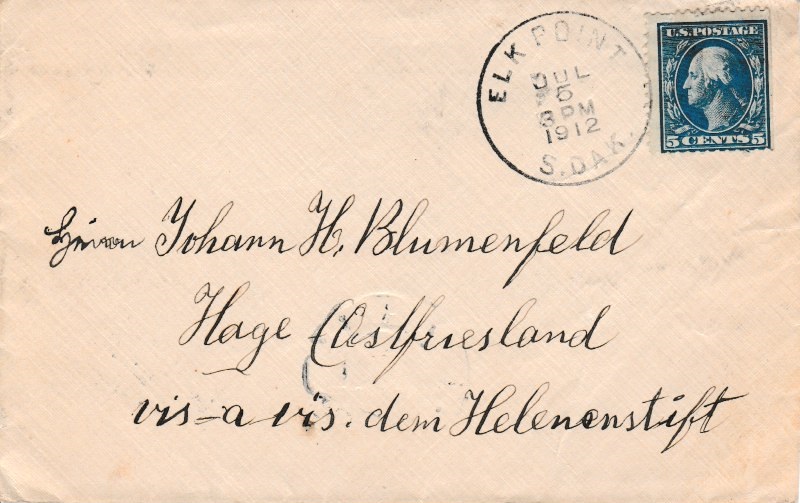 ELK POINT
JUL
5
3 PM
1912
S. DAK.
U.S. POSTAGE
5 CENTS 5
Herrn Johann H. Blumenfeld
Hage (Ostfriesland
vis-a vis. dem Helenenstift